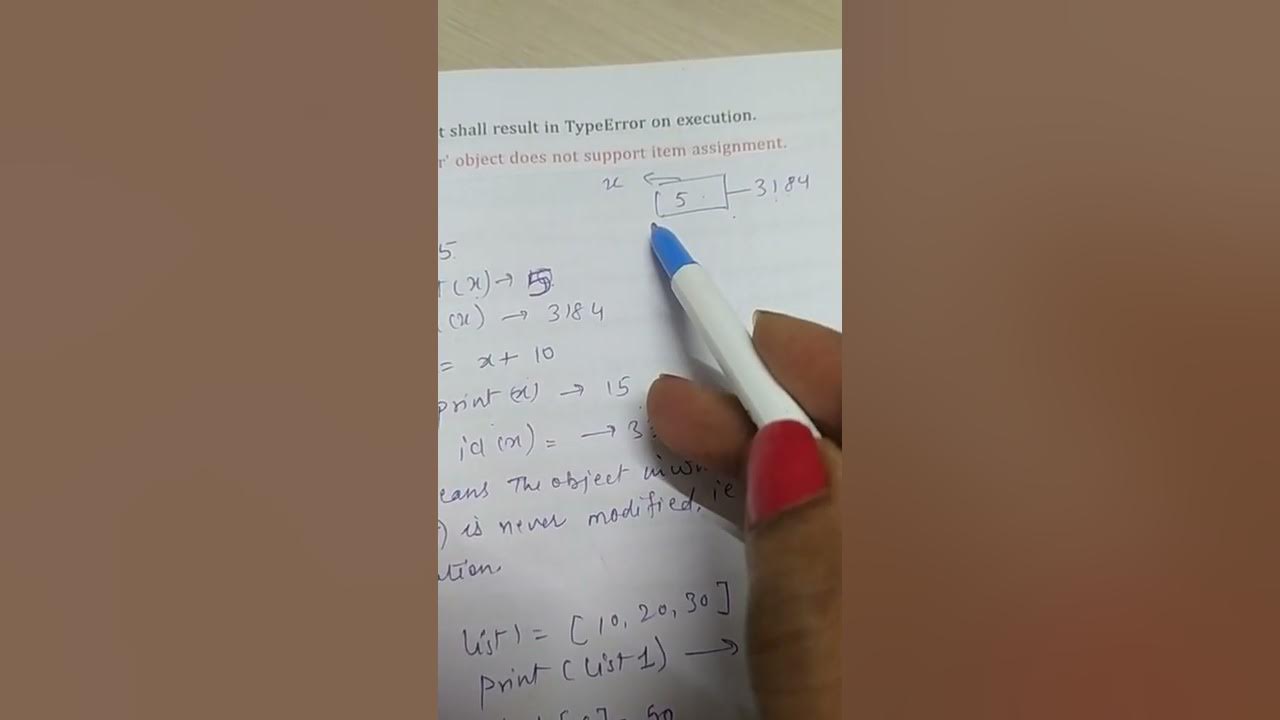 t shall result in TypeError on execution.
r' object does not support item assignment.
x 5 3184
5
(x) → 5
(x) → 3184
= x + 10
print (x) → 15
id (x) = → 3
eans The object in
) is never modified, ie
ution.
list1 = [10, 20, 30]
print (list1) →
50